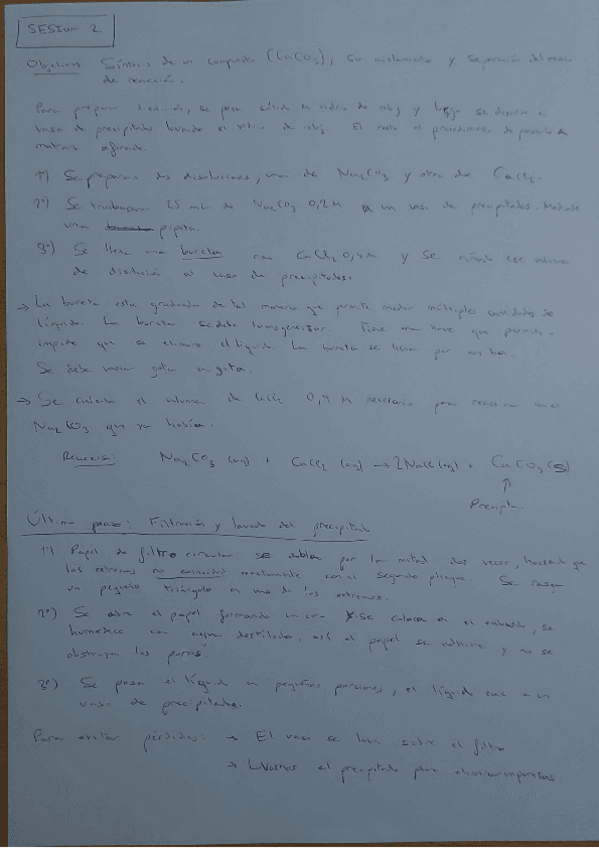 SESIÓN 2
Objetivos Síntesis de un compuesto (CaCO3), su aislamiento y separación del medio
de reacción.
Para preparar disolución, se pesa sólido en vidrio de reloj y luego se disuelve en
vaso de precipitados lavando el vidrio de reloj. El resto el procedimiento de pasarlo a
matraz aforado.
1º) Se preparan dos disoluciones, una de Na2CO3 y otra de CaCl2.
2º) Se 25 mL de Na2CO3 0,2M a un vaso de precipitados. Mediante
una pipeta.
3º) Se llena una bureta con CaCl2 0,4M y se añade ese volumen
de disolución al vaso de precipitados.
→ La bureta esta graduada de tal manera que permite medir múltiples cantidades de
líquido. La bureta se debe homogeneizar. Tiene una llave que permite o
impide que se elimine el líquido. La bureta se llena por arriba.
Se debe vaciar gota a gota.
→ Se calcula el volumen de CaCl2 0,4 M necesario para reaccionar con el
Na2CO3 que ya había.
Reacción: Na2CO3 (aq) + CaCl2 (aq) → 2NaCl(aq) + CaCO3(s)
↑
Precipita.
Último paso: Filtración y lavado del precipitado
1º) Papel de filtro circular se dobla por la mitad dos veces, haciendo que
los extremos no coincidan exactamente con el segundo pliegue. Se rasga
un pequeño triángulo en uno de los extremos.
2º) Se abre el papel formando un cono y se coloca en el embudo, se
humedece con agua destilada, así el papel se adhiere y no se
obstruyen los poros.
3º) Se pasa el líquido en pequeñas porciones, el líquido cae a un
vaso de precipitados.
Para evitar pérdidas: → El vaso se lava sobre el filtro
→ Lavamos el precipitado para eliminar impurezas.